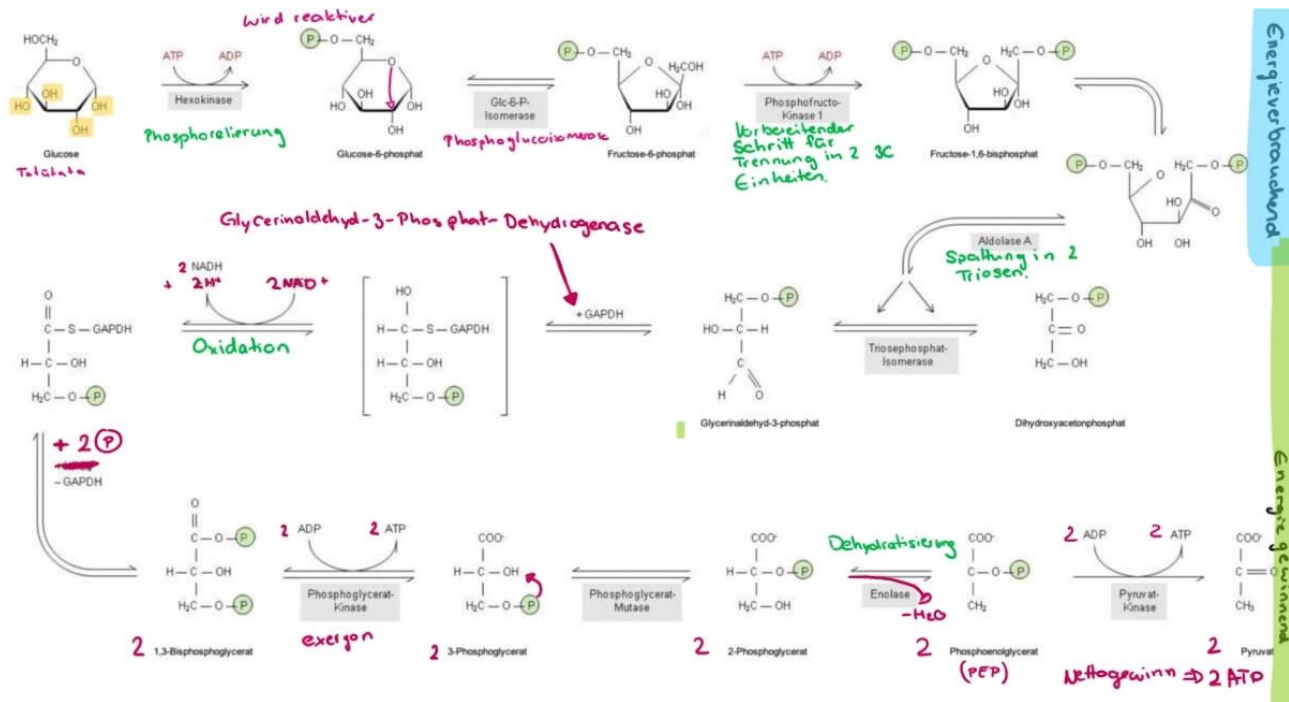 wird reaktiver
HOCH₂
OH
HO
OH
OH
Glucose
Tatütata
ATP
ADP
Hexokinase
Phosphorelierung
P-O-CH₂
O
OH
HO
OH
OH
Glucose-6-phosphat
Glc-6-P-
Isomerase
Phosphoglucoisomerase
P-O-CH₂
O
H₂COH
HO
OH
OH
Fructose-6-phosphat
ATP
ADP
Phosphofructo-
Kinase 1
Vorbereitender
Schritt für
Trennung in 2 3C
Einheiten.
P-O-CH₂
H₂C-O-P
O
HO
OH
OH
Fructose-1,6-bisphosphat
Energieverbrauchend
P-O-CH₂
H₂C-O-P
O
HO
O
OH
OH
Aldolase A
Spaltung in 2
Triosen.
Glycerinaldehyd-3-Phosphat-Dehydrogenase
2 NADH
+ 2H⁺
2NAD+
Oxidation
O
C-S-GAPDH
H-C-OH
H₂C-O-P
HO
H-C-S-GAPDH
H-C-OH
H₂C-O-P
+GAPDH
H₂C-O-P
HO-C-H
C
H
O
Glycerinaldehyd-3-phosphat
Triosephosphat-
Isomerase
H₂C-O-P
C=O
H₂C-OH
Dihydroxyacetonphosphat
+ 2 P
-GAPDH
Energie gewinnend
O
C-O-P
H-C-OH
H₂C-O-P
2 1,3-Bisphosphoglycerat
2 ADP
2 ATP
Phosphoglycerat-
Kinase
exergon
COO⁻
H-C-OH
H₂C-O-P
2 3-Phosphoglycerat
Phosphoglycerat-
Mutase
COO⁻
H-C-O-P
H₂C-OH
2 2-Phosphoglycerat
Dehydratisierung
Enolase
-H₂O
COO⁻
C-O-P
CH₂
2 Phosphoenolglycerat
(PEP)
2 ADP
2 ATP
Pyruvat-
Kinase
COO⁻
C=O
CH₃
2 Pyruvat
Nettogewinn ⇒ 2 ATP